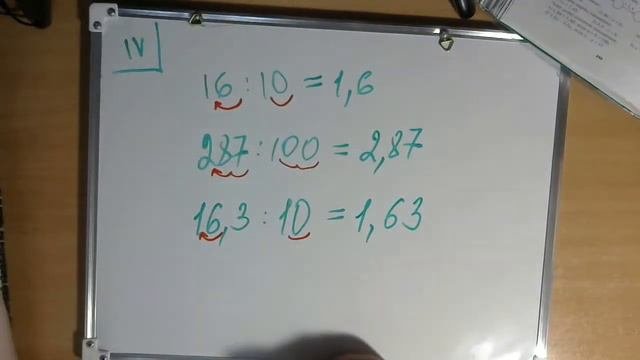 IV
16 : 10 = 1,6
287 : 100 = 2,87
16,3 : 10 = 1,63